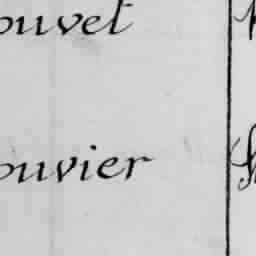 ouvet
ouvier